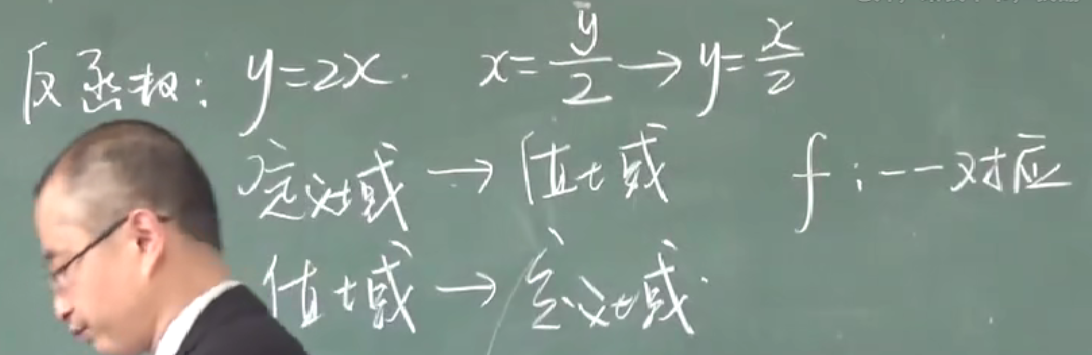 反函数: y=2x. x=y/2→y=x/2
定义域→值域 f:一一对应
值域→定义域